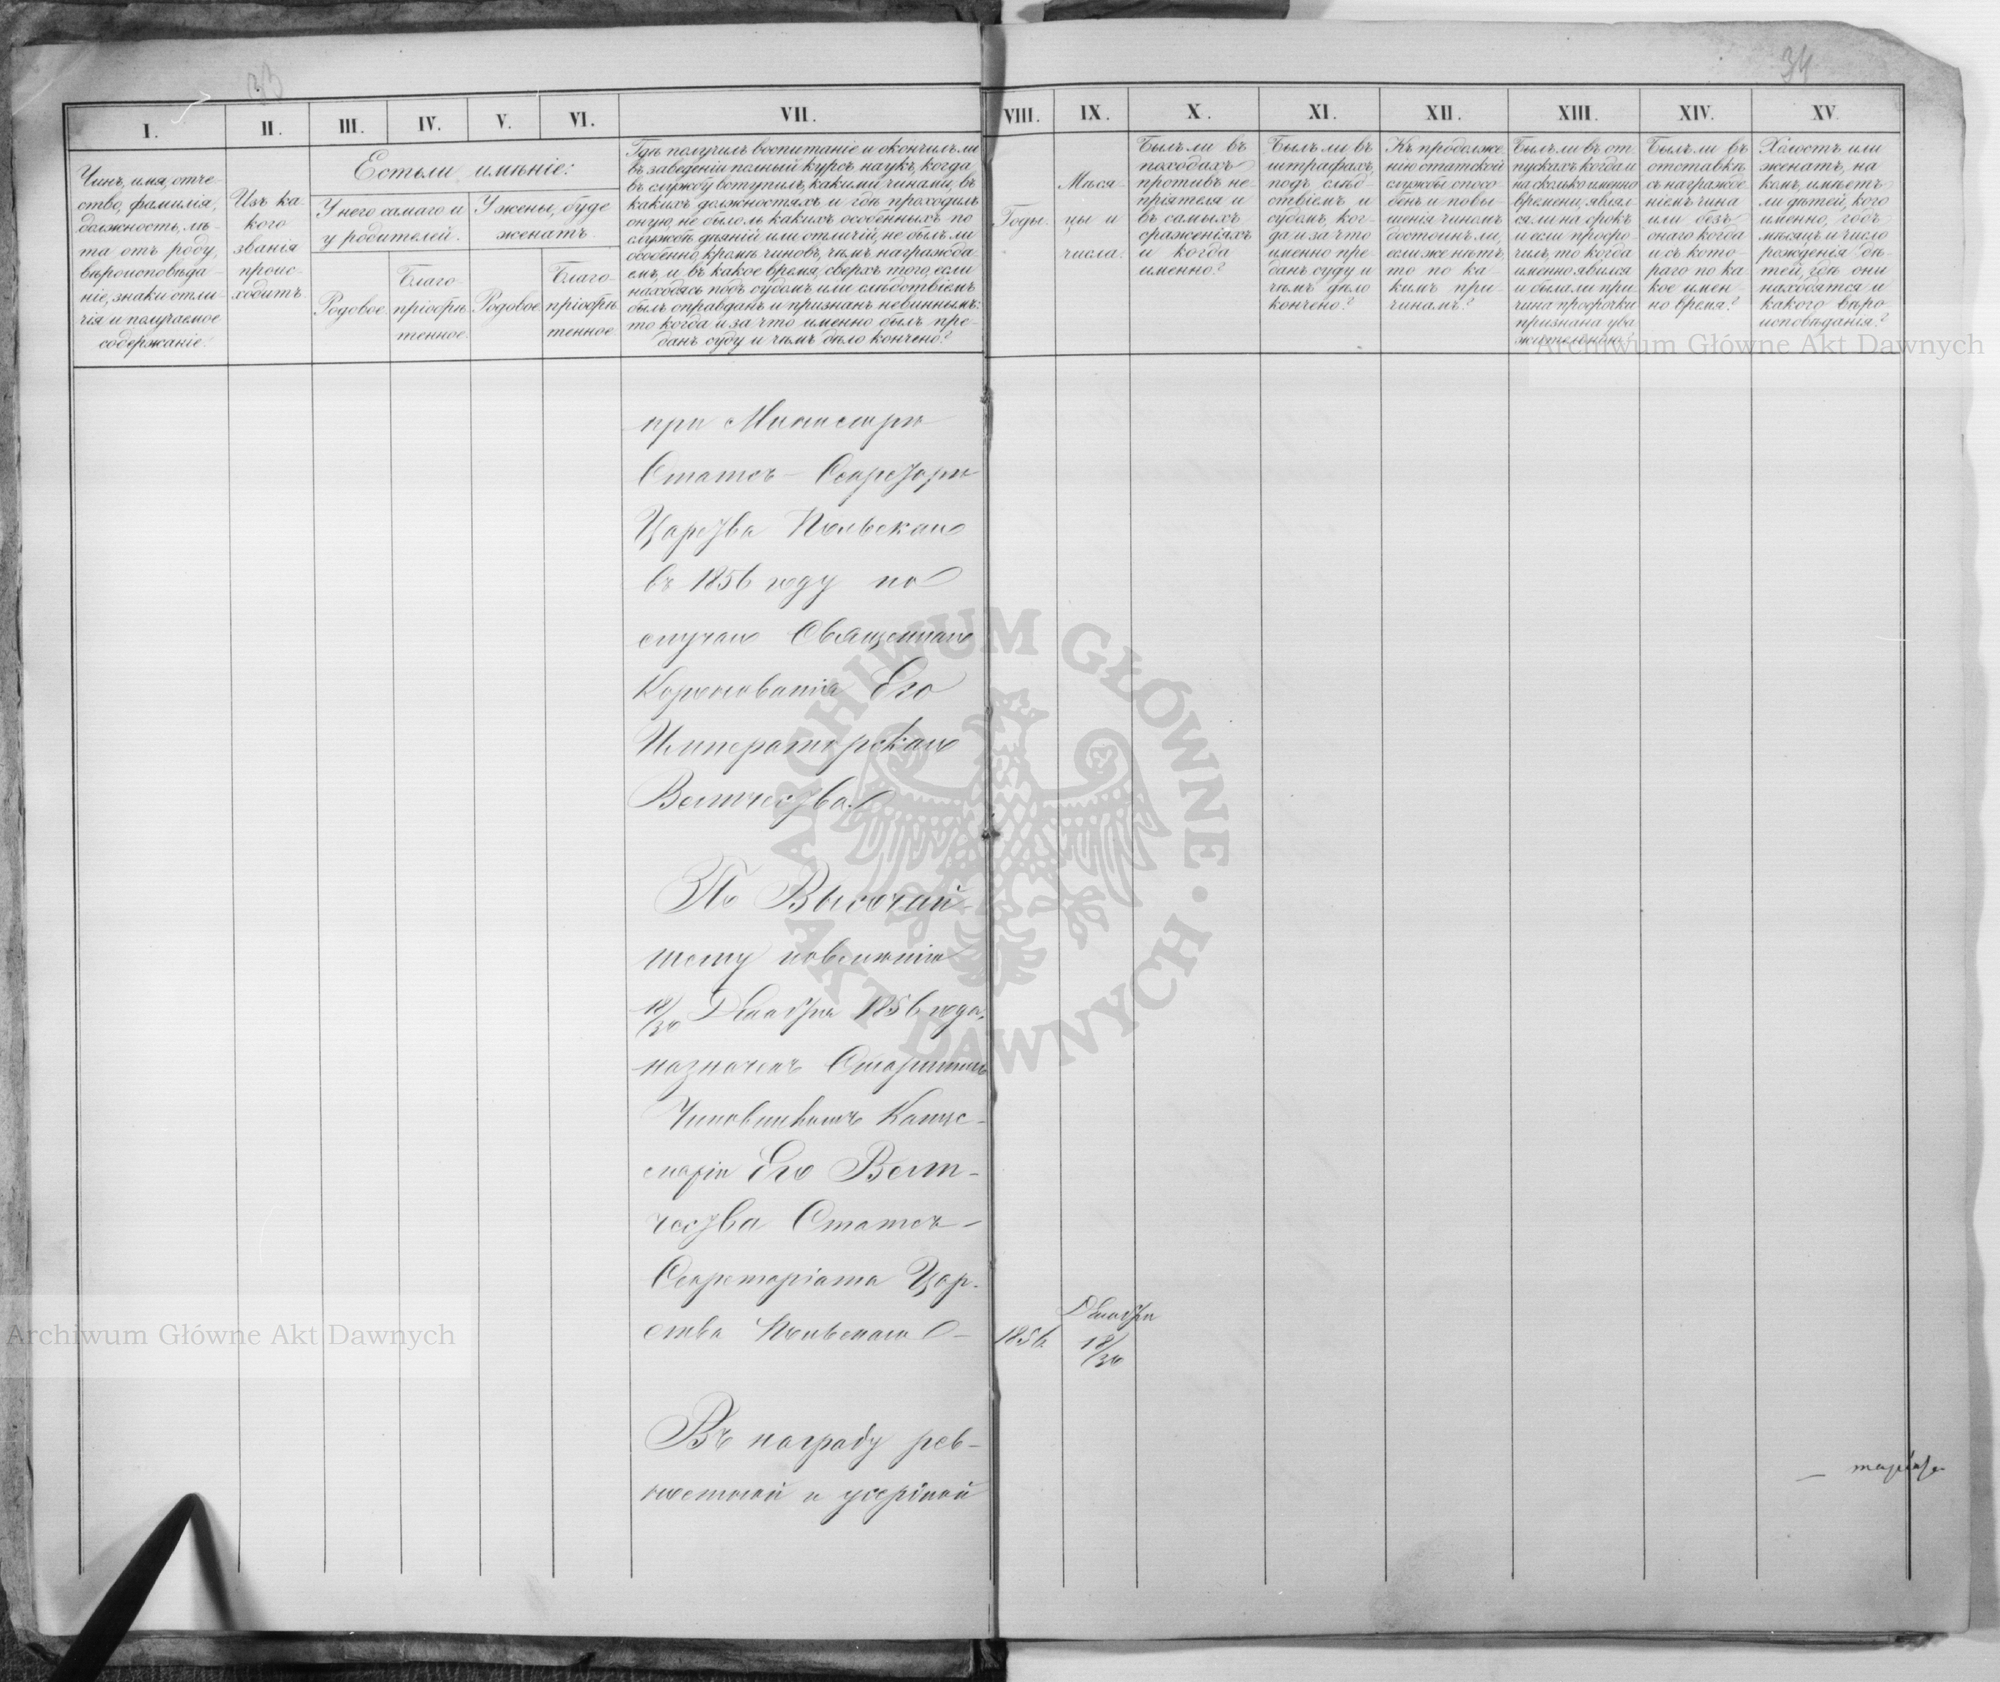 33
34
I.
II.
III.
IV.
V.
VI.
VII.
VIII.
IX.
X.
XI.
XII.
XIII.
XIV.
XV.
Чинъ, имя, отче-
ство, фамилія,
должность, лѣ-
та отъ роду,
вѣроисповѣда-
ніе, знаки отли-
чія и получаемое
содержаніе.
Изъ ка-
кого
званія
проис-
ходитъ.
Естьли имѣніе:
У него самаго и
у родителей.
У жены, буде
женатъ.
Родовое.
Благо-
пріобрѣ-
тенное.
Родовое.
Благо-
пріобрѣ-
тенное.
Гдѣ получилъ воспитаніе и окончилъ ли
въ заведеніи полный курсъ наукъ, когда
въ службу вступилъ, какими чинами, въ
какихъ должностяхъ и гдѣ проходилъ
оную, не было ль какихъ особенныхъ по
службѣ дѣяній или отличій, не былъ ли
особенно, кромѣ чиновъ, чѣмъ награжда-
емъ, и въ какое время, сверхъ того, если
находясь подъ судомъ или слѣдствіемъ
былъ оправданъ и признанъ невиннымъ:
то когда и за что именно былъ пре-
данъ суду и чѣмъ дѣло кончено?
Годы.
Мѣся-
цы и
числа.
Былъ ли въ
походахъ
противъ не-
пріятеля и
въ самыхъ
сраженіяхъ
и когда
именно?
Былъ ли въ
штрафахъ,
подъ слѣд-
ствіемъ и
судомъ, ког-
да и за что
именно пре-
данъ суду и
чѣмъ дѣло
кончено?
Къ продолже-
нію статской
службы спосо-
бенъ и повы-
шенія чиномъ
достоинъ ли,
если же нѣтъ,
то по ка-
кимъ при-
чинамъ?
Былъ ли въ от-
пускахъ когда и
на сколько именно
времени, являл-
ся ли на срокъ
и если просро-
чилъ, то когда
именно явился
и была ли при-
чина просрочки
признана ува-
жительною.
Былъ ли въ
отставкѣ
съ награжде-
ніемъ чина
или безъ
онаго когда
и съ кото-
раго по ка-
кое имен-
но время?
Холостъ или
женатъ, на
комъ, имѣетъ
ли дѣтей, кого
именно, годъ,
мѣсяцъ и число
рожденія дѣ-
тей, гдѣ они
находятся и
какого вѣро-
исповѣданія?
при Министрѣ
Статсъ-Секретарѣ
Царства Польскаго
въ 1856 году по
случаю Священнаго
Коронованія Его
Императорскаго
Величества
По Высочай-
шему повелѣнію
18/30 Декабря 1856 года
назначенъ Старшимъ
Чиновникомъ Канце-
ляріи Его Вели-
чества Статсъ-
Секретаріата Цар-
ства Польскаго
1856
Декабря
18/30
Въ награду рев-
ностной и усердной
ARCHIWUM GŁÓWNE AKT DAWNYCH
Archiwum Główne Akt Dawnych
Archiwum Główne Akt Dawnych